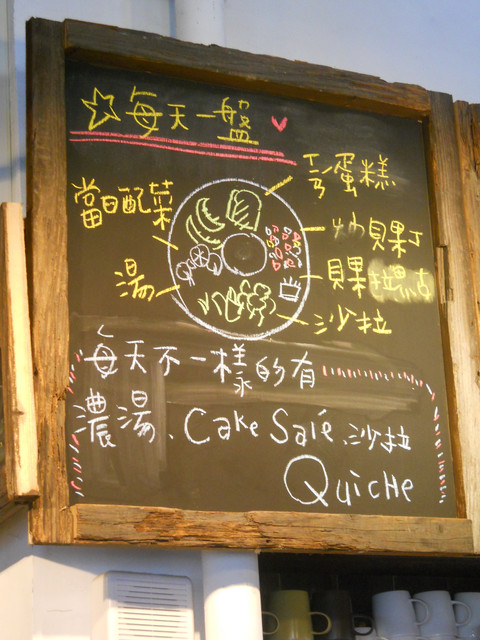 ☆每天一盤♥
蛋糕
當日配菜
炒貝果丁
貝果
湯
沙拉
每天不一樣的有
濃湯、Cake Salé、沙拉
QuicHe